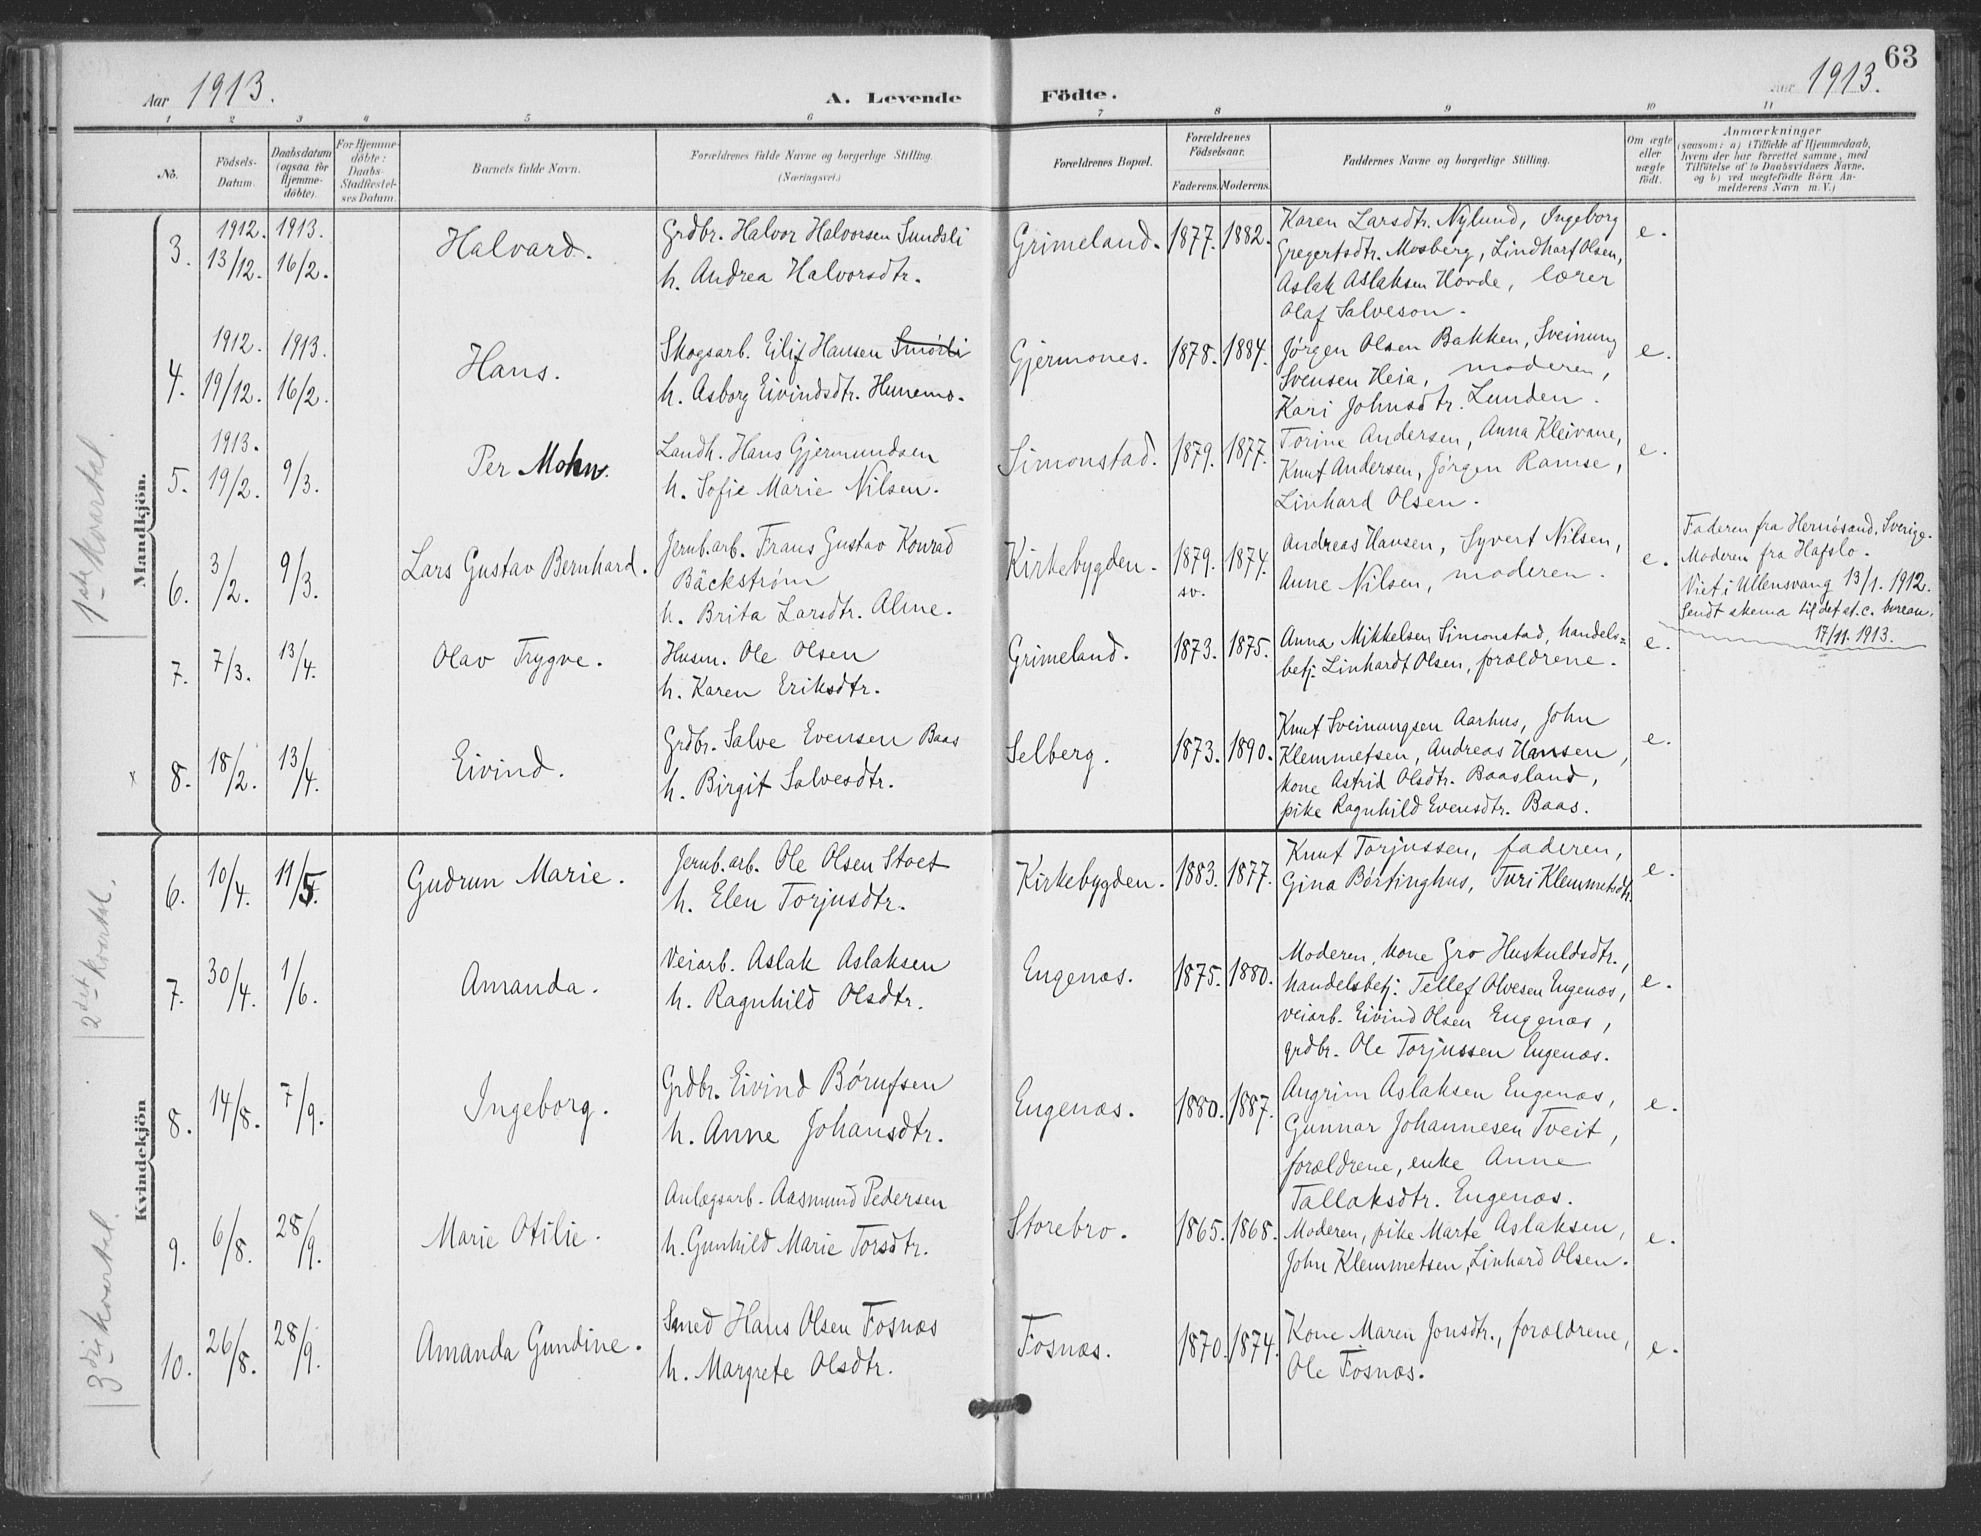 63
Aar 1913.
A. Levende Födte.
Aar 1913.
1 2 3 4 5 6 7 8 9 10 11
No.
Födsels-Datum.
Daabsdatum (ogsaa for Hjemmedöbte).
For Hjemmedöbte: Daabs-Stadfæstelses Datum.
Barnets fulde Navn.
Forældrenes fulde Navne og borgerlige Stilling.
(Næringsvei.)
Forældrenes Bopæl.
Forældrenes Födselsaar.
Faderens. Moderens.
Faddernes Navne og borgerlige Stilling.
Om ægte eller uægte födt.
Anmærkninger
(saasom: a) i Tilfælde af Hjemmedaab,
hvem der har forrettet samme, med
Tilföielse af to Daabsvidners Navne,
og b) ved uægtefödte Börn An-
melderens Navn m. V.)
1ste kvartal.
Mandkjön.
3.
1912. 13/12.
1913. 16/2.
Halvard.
Grdbr. Halvor Halvorsen Sundsli
h. Andrea Halvorsdtr.
Grimeland.
1877. 1882.
Karen Larsdtr. Nylund, Ingeborg
Gregertsdtr. Mosberg, Lindhart Olsen,
Aslak Aslaksen Hovde, lærer
Olaf Salveson.
e.
4.
1912. 19/12.
1913. 16/2.
Hans.
Skogsarb. Eilif Hansen Smörli
h. Asborg Eivindsdtr. Hunemo.
Gjermones.
1878. 1884.
Jørgen Olsen Bakken, Sveinung
Svensen Heia, moderen,
Kari Johnsdtr. Lunden.
e.
5.
1913. 19/2.
9/3.
Per Mohn.
Landh. Hans Gjermundsen
h. Sofie Marie Nilsen.
Simonstad.
1879. 1877.
Torine Andersen, Anna Kleivane,
Knut Andersen, Jørgen Ramse,
Linhard Olsen.
e.
6.
3/2.
9/3.
Lars Gustav Bernhard.
Jernb.arb. Frans Gustav Konrad
Bäckström
h. Brita Larsdtr. Alme.
Kirkebygden.
1879. sv. 1874.
Andreas Hansen, Syvert Nilsen,
Anne Nilsen, moderen.
e.
Faderen fra Hernösand, Sverige.
Moderen fra Hafslo.
Viet i Ullensvang 13/1. 1912.
Sendt skema til det st. c. bureau.
17/11. 1913.
7.
7/3.
13/4.
Olav Trygve.
Husm. Ole Olsen
h. Karen Eriksdtr.
Grimeland.
1873. 1875.
Anna Mikkelsen Simonstad, handels-
betj. Linhardt Olsen, forældrene.
e.
x
8.
18/2.
13/4.
Eivind.
Grdbr. Salve Evensen Baas
h. Birgit Salvesdtr.
Selberg.
1873. 1890.
Knut Sveinungsen Aarhus, John
Klemmetsen, Andreas Hansen,
kone Astrid Olsdtr. Baasland,
pike Ragnhild Evensdtr. Baas.
e.
2det kvartal.
Kvindekjön
6.
10/4.
11/5.
Gudrun Marie.
Jernb.arb. Ole Olsen Stoet
h. Elen Torjusdtr.
Kirkebygden.
1883. 1877.
Knut Torjussen, faderen,
Gina Børtinghus, Turi Klemmetsdtr.
e.
7.
30/4.
1/6.
Amanda.
Veiarb. Aslak Aslaksen
h. Ragnhild Olsdtr.
Engenæs.
1875. 1880.
Moderen, kone Gro Huskuldsdtr.,
handelsbetj. Tellef Olvesen Engenæs,
veiarb. Eivind Olsen Engenæs,
grdbr. Ole Torjussen Engenæs.
e.
3die kvartal.
8.
14/8.
7/9.
Ingeborg.
Grdbr. Eivind Börufsen
h. Anne Johansdtr.
Engenæs.
1880. 1887.
Angrim Aslaksen Engenæs,
Gunnar Johannesen Tveit,
forældrene, enke Anne
Tallaksdtr. Engenæs.
e.
9.
6/8.
28/9.
Marie Otilie.
Anlægsarb. Aasmund Pedersen
h. Gunhild Marie Torsdtr.
Storebro.
1865. 1868.
Moderen, pike Marte Aslaksen,
John Klemmetsen, Linhard Olsen.
e.
10.
26/8.
28/9.
Amanda Gundine.
Smed Hans Olsen Fosnæs
h. Margrete Olsdtr.
Fosnæs.
1870. 1874.
Kone Maren Jonsdtr., forældrene,
Ole Fosnæs.
e.